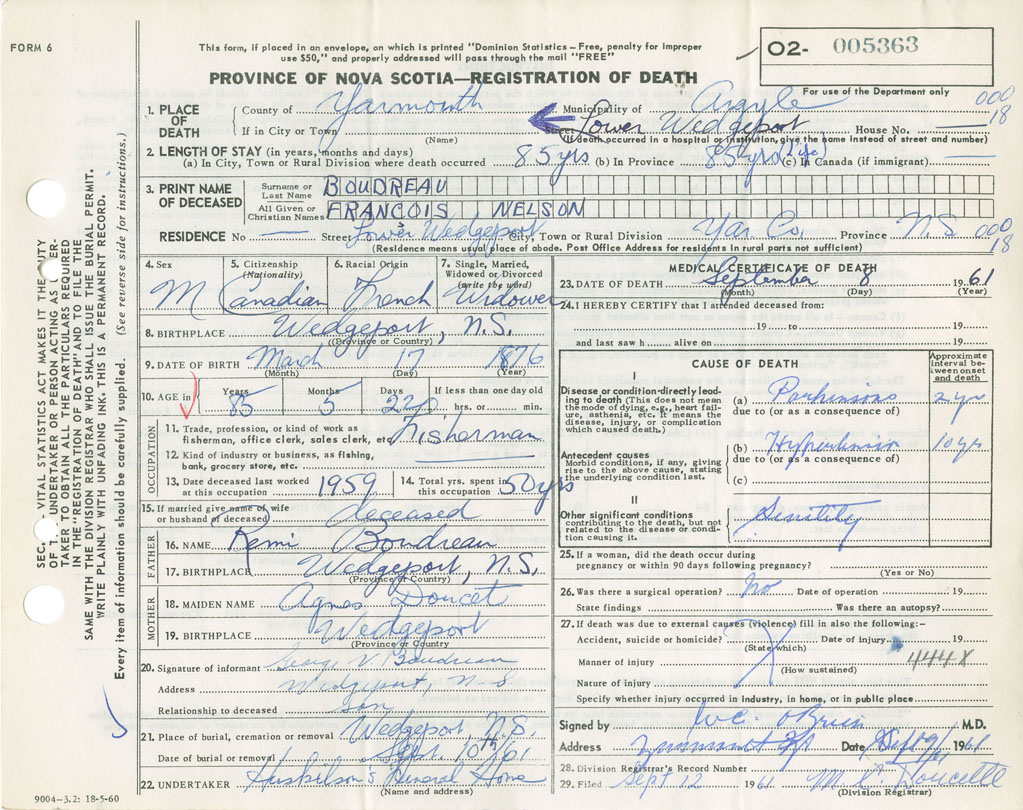 FORM 6
This form, if placed in an envelope, on which is printed "Dominion Statistics – Free, penalty for improper
use $50," and properly addressed will pass through the mail "FREE"
O2- 005363
PROVINCE OF NOVA SCOTIA—REGISTRATION OF DEATH
For use of the Department only
000
18
1. PLACE OF DEATH
County of Yarmouth Municipality of Argyle
If in City or Town (Name) Street Lower Wedgeport House No. —
(If death occurred in a hospital or institution, give the name instead of street and number)
2. LENGTH OF STAY (in years, months and days)
(a) In City, Town or Rural Division where death occurred 85 yrs (b) In Province 85 yrs (life) (c) In Canada (if immigrant) —
3. PRINT NAME OF DECEASED
Surname or Last Name BOUDREAU
All Given or Christian Names FRANCOIS NELSON
RESIDENCE No — Street Lower Wedgeport City, Town or Rural Division Yar Co, Province N.S.
000
18
(Residence means usual place of abode. Post Office Address for residents in rural parts not sufficient)
4. Sex M
5. Citizenship (Nationality) Canadian
6. Racial Origin French
7. Single, Married, Widowed or Divorced (write the word) Widower
8. BIRTHPLACE Wedgeport, N.S.
(Province or Country)
9. DATE OF BIRTH March 17 1876
(Month) (Day) (Year)
10. AGE in Years 85 Months 5 Days 22 If less than one day old hrs. or min.
OCCUPATION
11. Trade, profession, or kind of work as
fisherman, office clerk, sales clerk, etc. Fisherman
12. Kind of industry or business, as fishing,
bank, grocery store, etc. —
13. Date deceased last worked at this occupation 1959
14. Total yrs. spent in this occupation 50 yrs
15. If married give name of wife
or husband (or deceased) deceased
FATHER
16. NAME Remi Boudreau
17. BIRTHPLACE Wedgeport, N.S.
(Province or Country)
MOTHER
18. MAIDEN NAME Agnes Doucet
19. BIRTHPLACE Wedgeport
(Province or Country)
20. Signature of informant George V Boudreau
Address Wedgeport, N S
Relationship to deceased Son
21. Place of burial, cremation or removal Wedgeport, N.S.
Date of burial or removal Sept. 10th/61
22. UNDERTAKER Huskilson's Funeral Home
(Name and address)
9004–3.2: 18-5-60
MEDICAL CERTIFICATE OF DEATH
23. DATE OF DEATH September 8 1961
(Month) (Day) (Year)
24. I HEREBY CERTIFY that I attended deceased from:
19 to 19
and last saw h alive on 19
CAUSE OF DEATH
Approximate interval between onset and death
I
Disease or condition directly leading to death (This does not mean
the mode of dying, e.g., heart failure, asthenia, etc. It means the
disease, injury, or complication
which caused death.)
(a) Parkinsons 2 yr
due to (or as a consequence of)
Antecedent causes
Morbid conditions, if any, giving
rise to the above cause, stating
the underlying condition last.
(b) Hypertension 10 yr
due to (or as a consequence of)
(c)
II
Other significant conditions
contributing to the death, but not
related to the disease or condition causing it.
Senility
25. If a woman, did the death occur during
pregnancy or within 90 days following pregnancy?
(Yes or No)
26. Was there a surgical operation? No Date of operation 19
State findings Was there an autopsy?
27. If death was due to external causes (violence) fill in also the following:–
Accident, suicide or homicide? Date of injury 19
(State which)
Manner of injury 444X
(How sustained)
Nature of injury
Specify whether injury occurred in industry, in home, or in public place
Signed by W.C. O'Brien M.D.
Address Date Sept 9/61 1961
28. Division Registrar's Record Number
29. Filed Sept 12 1961 M L Doucette
(Division Registrar)
SEC. VITAL STATISTICS ACT MAKES IT THE DUTY
OF UNDERTAKER OR PERSON ACTING AS UNDER-
TAKER TO OBTAIN ALL THE PARTICULARS REQUIRED
IN THE "REGISTRATION OF DEATH" AND TO FILE THE
SAME WITH THE DIVISION REGISTRAR WHO SHALL ISSUE THE BURIAL PERMIT.
WRITE PLAINLY WITH UNFADING INK. THIS IS A PERMANENT RECORD.
Every item of information should be carefully supplied. (See reverse side for instructions.)